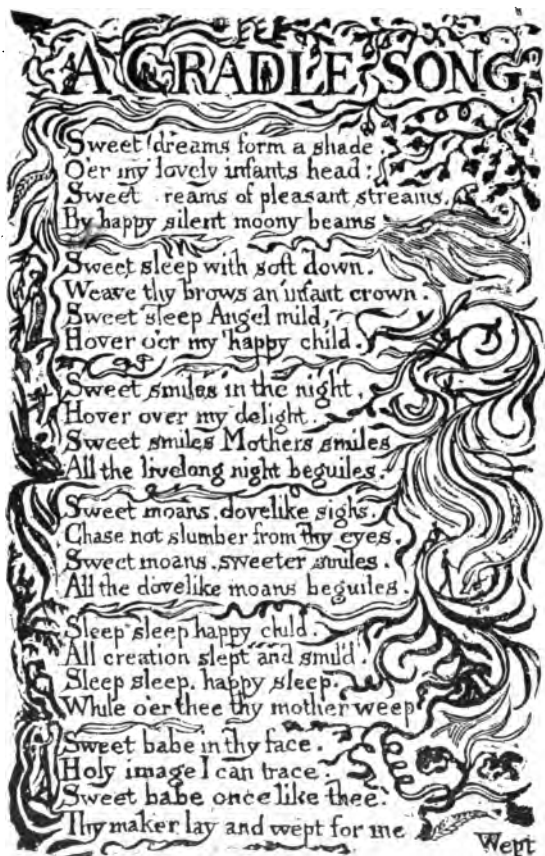 A CRADLE SONG
Sweet dreams form a shade
O'er my lovely infants head:
Sweet reams of pleasant streams.
By happy silent moony beams
Sweet sleep with soft down.
Weave thy brows an infant crown.
Sweet sleep Angel mild,
Hover o'er my happy child.
Sweet smiles in the night,
Hover over my delight.
Sweet smiles Mothers smiles
All the livelong night beguiles.
Sweet moans, dovelike sighs.
Chase not slumber from thy eyes.
Sweet moans, sweeter smiles.
All the dovelike moans beguiles.
Sleep sleep happy child.
All creation slept and smil'd.
Sleep sleep, happy sleep.
While o'er thee thy mother weep
Sweet babe in thy face.
Holy image I can trace.
Sweet babe once like thee.
Thy maker lay and wept for me
Wept